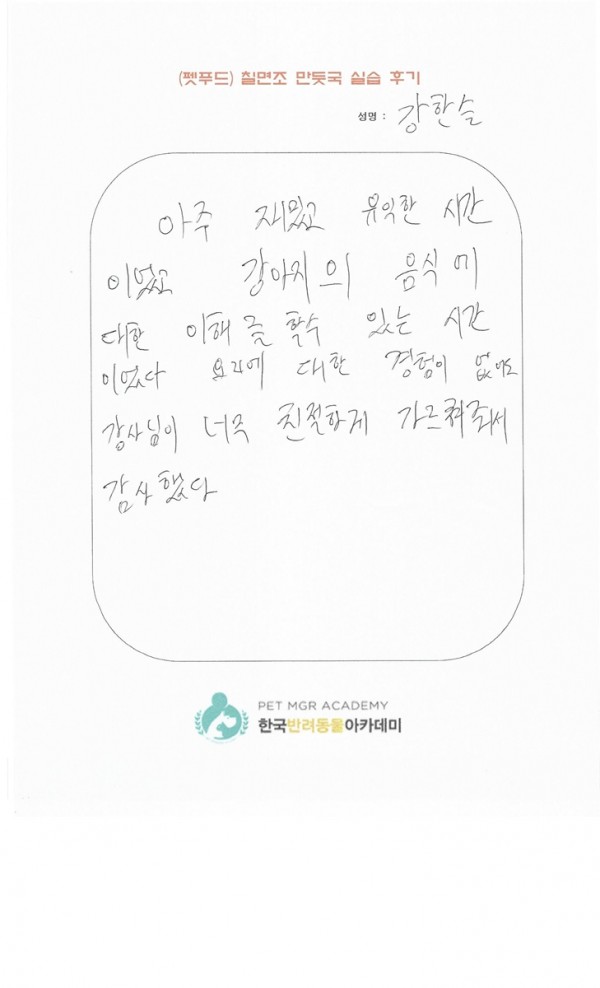 (펫푸드) 칠면조 만둣국 실습 후기
성명 : 강한슬
아주 재밌고 유익한 시간
이었고 강아지의 음식에
대한 이해를 할수 있는 시간
이었다 요리에 대한 경험이 없어도
강사님이 너무 친절하게 가르쳐줘서
감사했다
PET MGR ACADEMY
한국반려동물아카데미